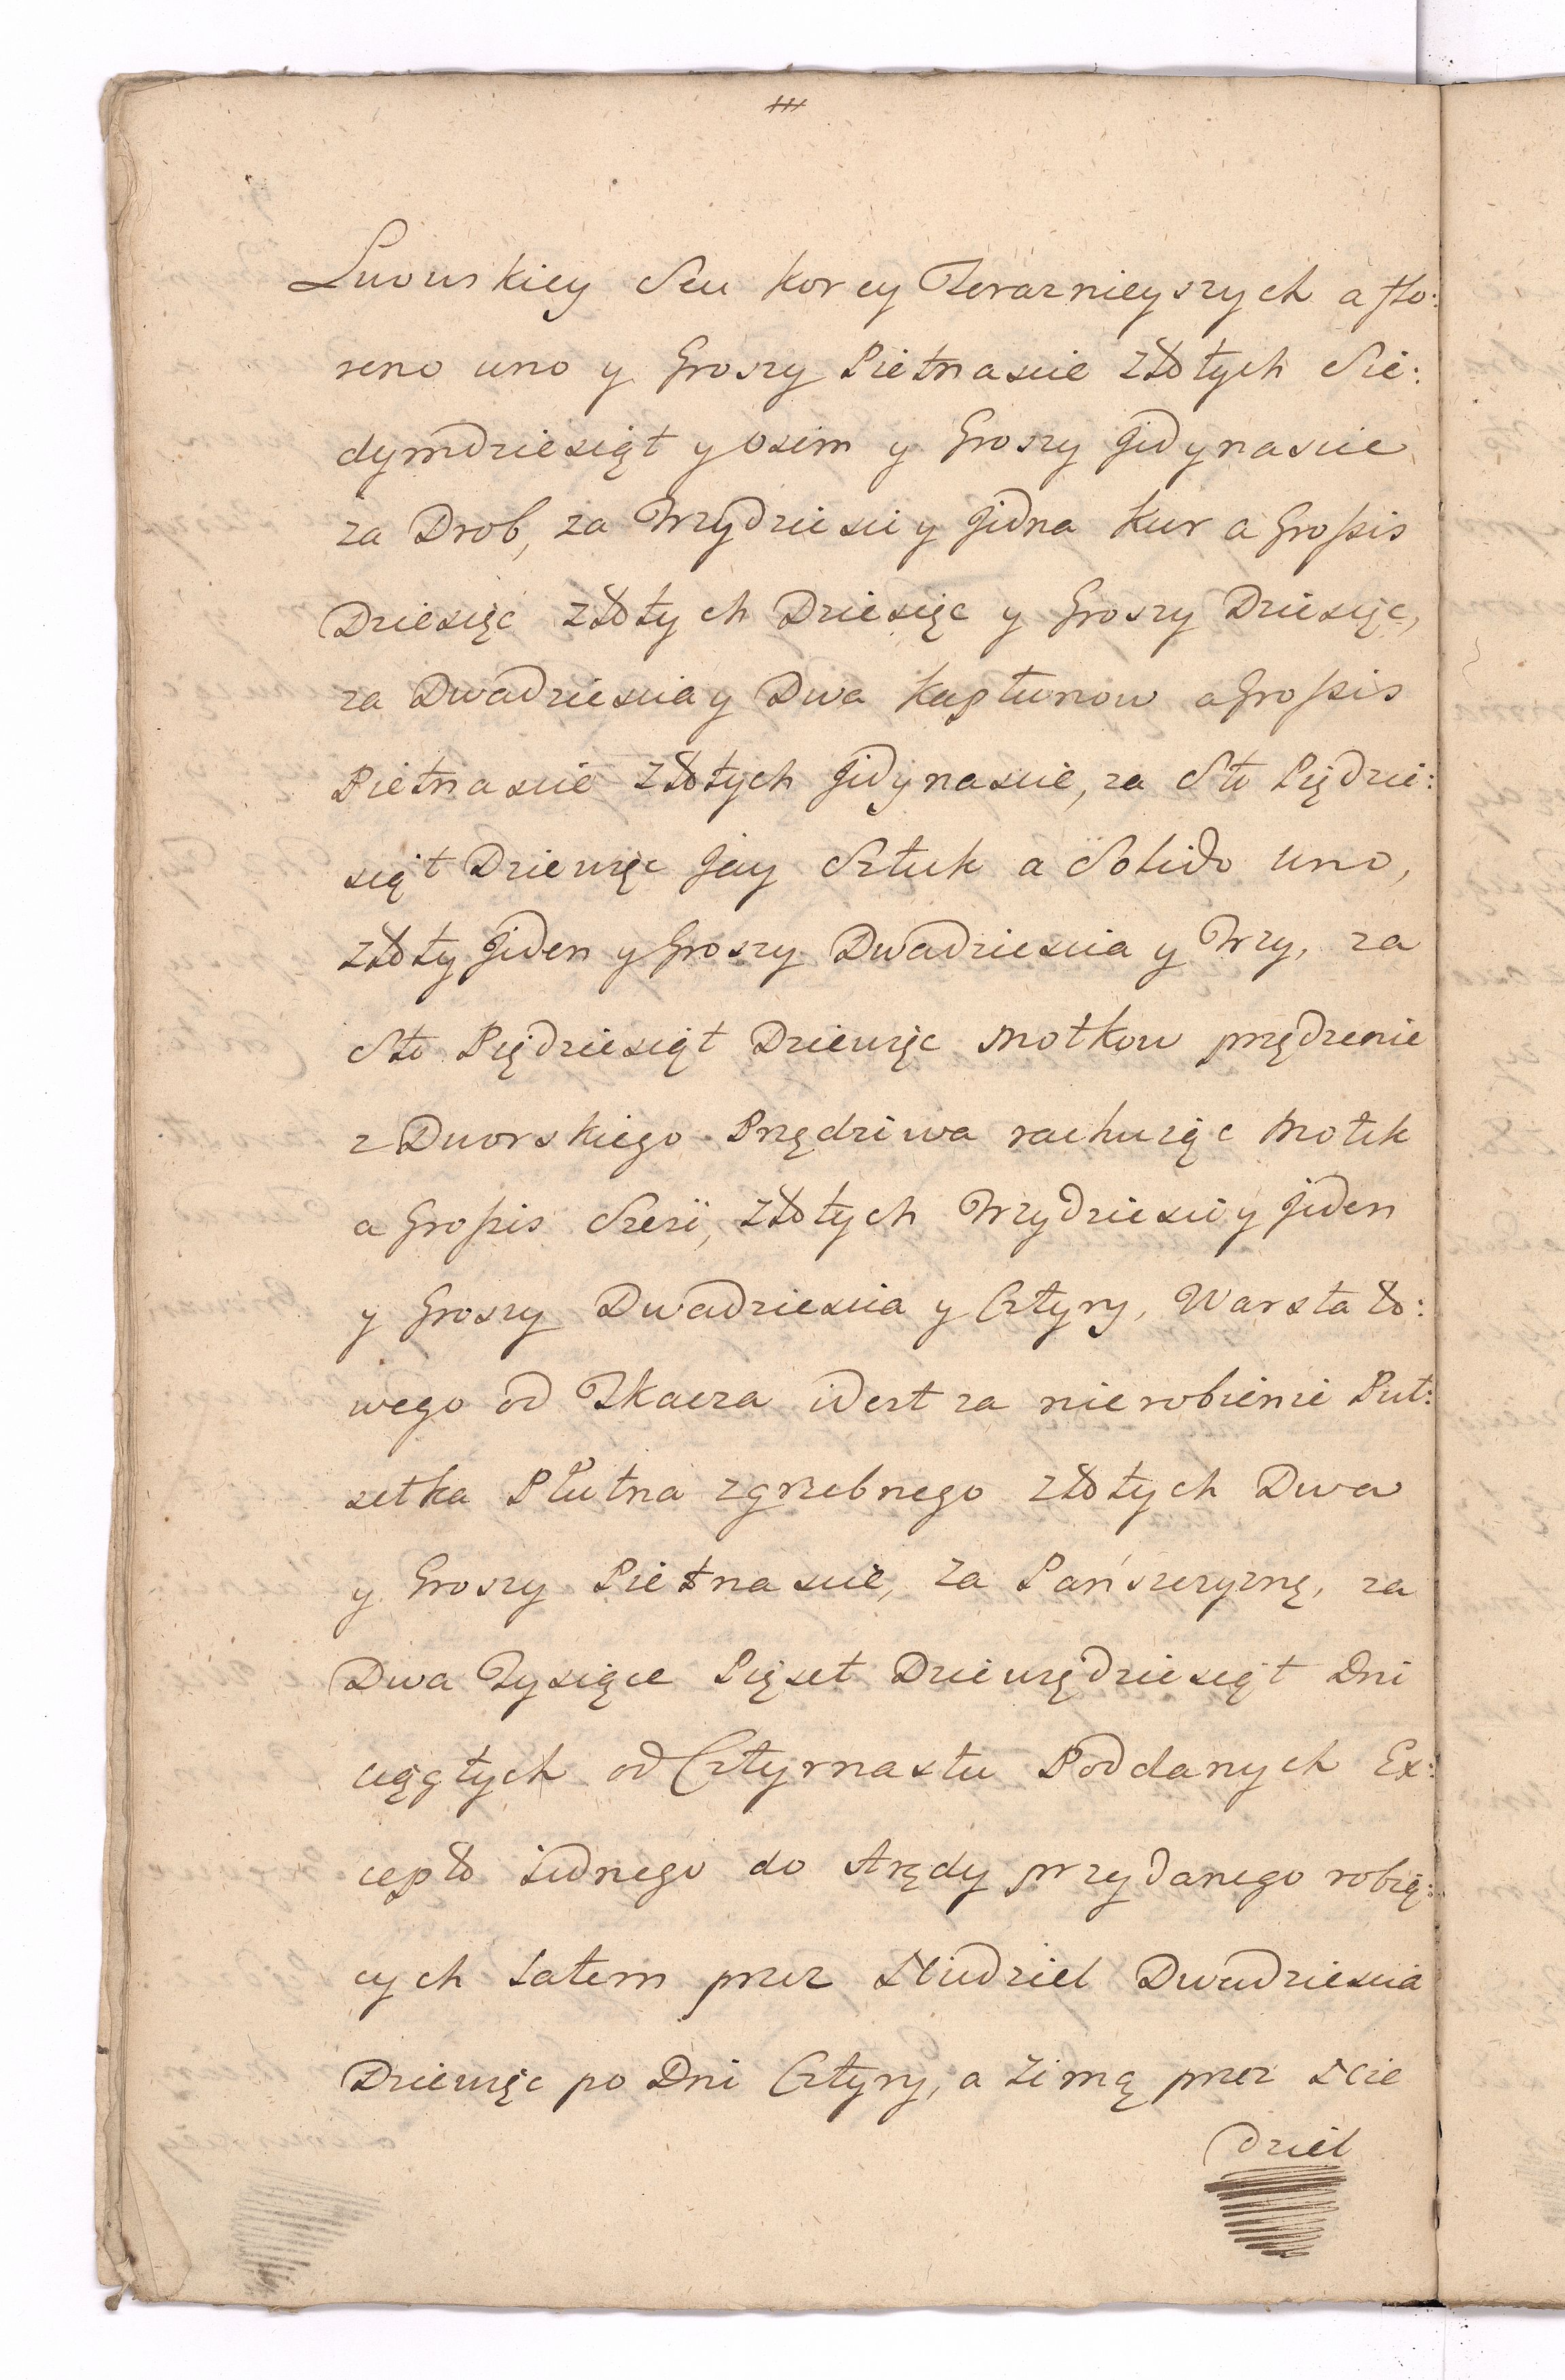 Lwowskiey Seu Korcy Terazniéyszych a flo:
reno uno y Groszy Pietnascie złotych Sie:
dymdziesiąt y osim y Groszy Jidynascie
za Drob, za Trzydziesci y Jidna Kur a Grossis
Dziesięć złotych Dziesięc y Groszy Dziesięc,
za Dwadziescia y Dwa Kapłunow a Grossis
Pietnascie złotych Jidynascie, za Sto Piędzie:
siąt Dziewięc Jay Sztuk a Solido uno,
złoty Jiden y Groszy Dwadziescia y Trzy, za
Sto Piędziesiąt Dziewięc Motkow przędzenie
z Dworskiego Przędziwa rachuiąc Motek
a Grossis Szesć, złotych Trzydziesci y Jiden
y Groszy Dwadziescia y Cztyry, Warstato:
wego od Tkacza idest za nierobienie Put:
setka Płutna zgrzebnego złotych Dwa
y Groszy Pietnascie, za Pańszczyznę, za
Dwa Tysiące Pięset Dziewiędziesiąt Dni
ciągłych od Cztyrnastu Poddanych Ex:
cepto iednego do Arędy przydanego robią:
cych Latem przez Niedziel Dwadziescia
Dziewięc po Dni Cztyry, a Zimą przez Nie
dziel